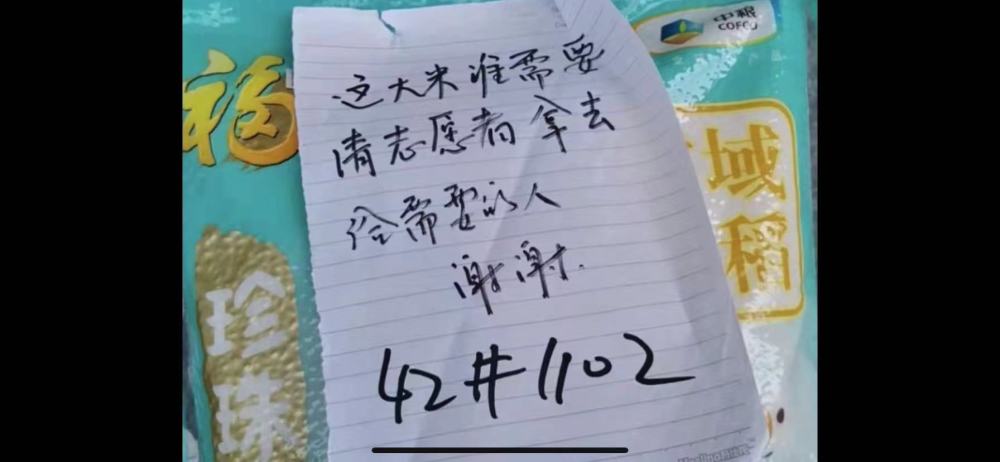 福
中粮
COFCO
这大米谁需要
请志愿者拿去
给需要的人
谢谢.
42#1102
域
稻
珍
珠